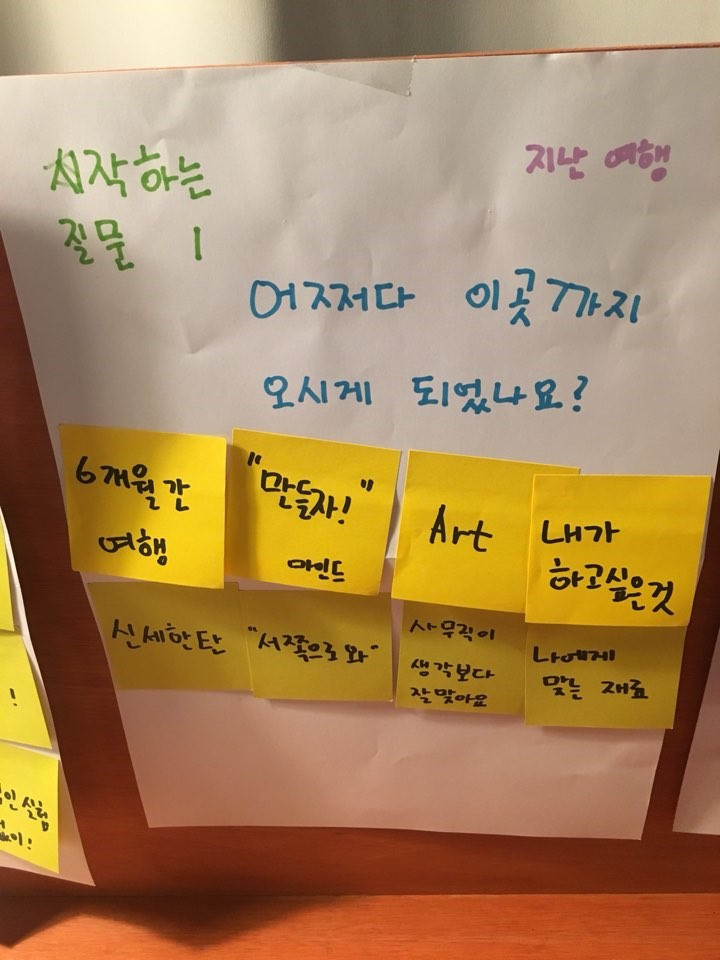 시작하는
질문 1
지난 여행
어쩌다 이곳까지
오시게 되었나요?
6개월간
여행
"만들자!"
마인드
Art
내가
하고싶은것
신세한탄
"서쪽으로 와"
사무직이
생각보다
잘맞아요
나에게
맞는 재료
!
실험
없이!